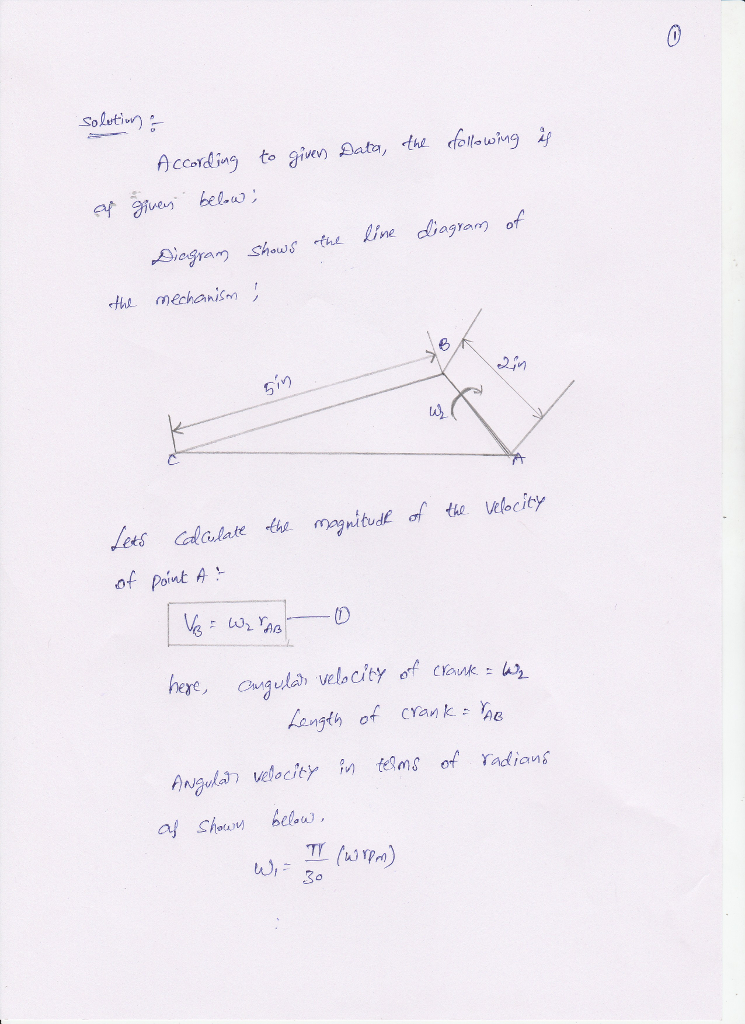 ①
Solution :-
According to given Data, the following is
as given below ;
Diagram shows the line diagram of
the mechanism ;
B
5in
2in
ω₂
C
A
Lets Calculate the magnitude of the Velocity
of point A :-
V_B = ω₂ r_AB — ①
here, angular velocity of crank = ω₂
Length of crank = r_AB
Angular velocity in terms of radians
as shown below.
ω₁ = π/30 (ω rpm)